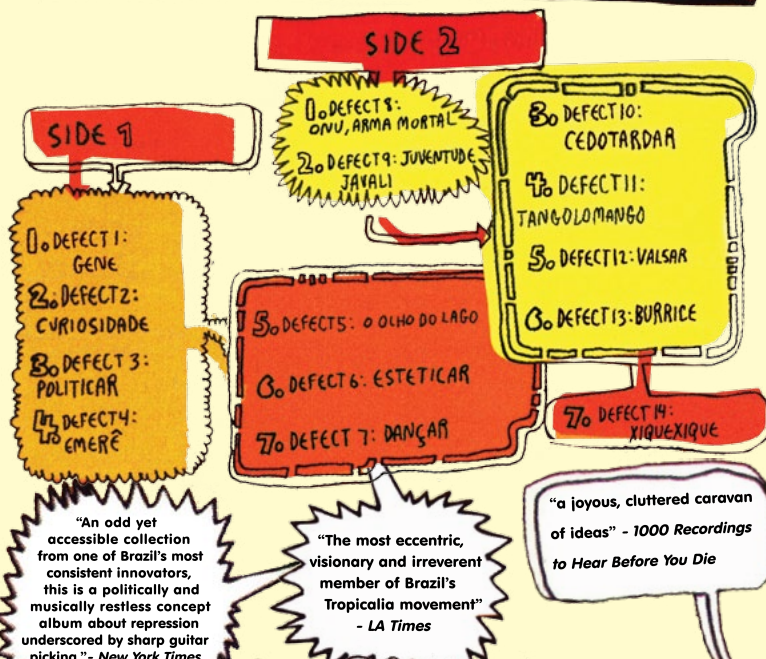 SIDE 1
1. DEFECT 1:
GENE
2. DEFECT 2:
CURIOSIDADE
3. DEFECT 3:
POLITICAR
4. DEFECT 4:
EMERÊ
5. DEFECT 5: O OLHO DO LAGO
6. DEFECT 6: ESTETICAR
7. DEFECT 7: DANÇAR
SIDE 2
1. DEFECT 8:
ONU, ARMA MORTAL
2. DEFECT 9: JUVENTUDE
JAVALI
3. DEFECT 10:
CEDOTARDAR
4. DEFECT 11:
TANGOLOMANGO
5. DEFECT 12: VALSAR
6. DEFECT 13: BURRICE
7. DEFECT 14:
XIQUEXIQUE
"An odd yet
accessible collection
from one of Brazil's most
consistent innovators,
this is a politically and
musically restless concept
album about repression
underscored by sharp guitar
picking." - New York Times
"The most eccentric,
visionary and irreverent
member of Brazil's
Tropicalia movement"
- LA Times
"a joyous, cluttered caravan
of ideas" - 1000 Recordings
to Hear Before You Die